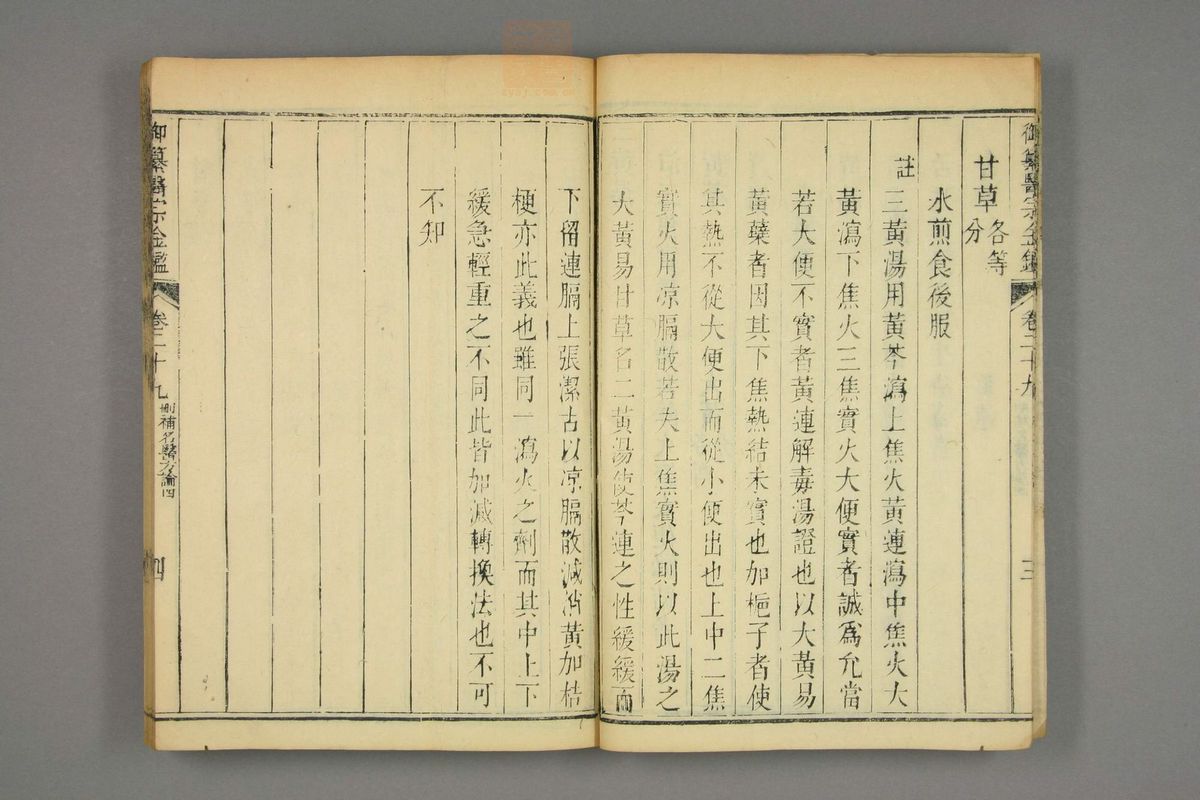 御纂醫宗金鑑 卷二十九 三
甘草各等分
水煎食後服
註
三黃湯用黃芩瀉上焦火黃連瀉中焦火大
黃瀉下焦火三焦實火大便實者誠爲允當
若大便不實者黃連解毒湯證也以大黃易
黃蘗者因其下焦熱結未實也加梔子者使
其熱不從大便出而從小便出也上中二焦
實火用凉膈散若夫上焦實火則以此湯之
大黃易甘草名二黃湯使芩連之性緩緩而
下留連膈上張潔古以凉膈散減硝黃加桔
梗亦此義也雖同一瀉火之劑而其中上下
緩急輕重之不同此皆加減轉換法也不可
不知
御纂醫宗金鑑 卷二十九 刪補名醫方論四 四